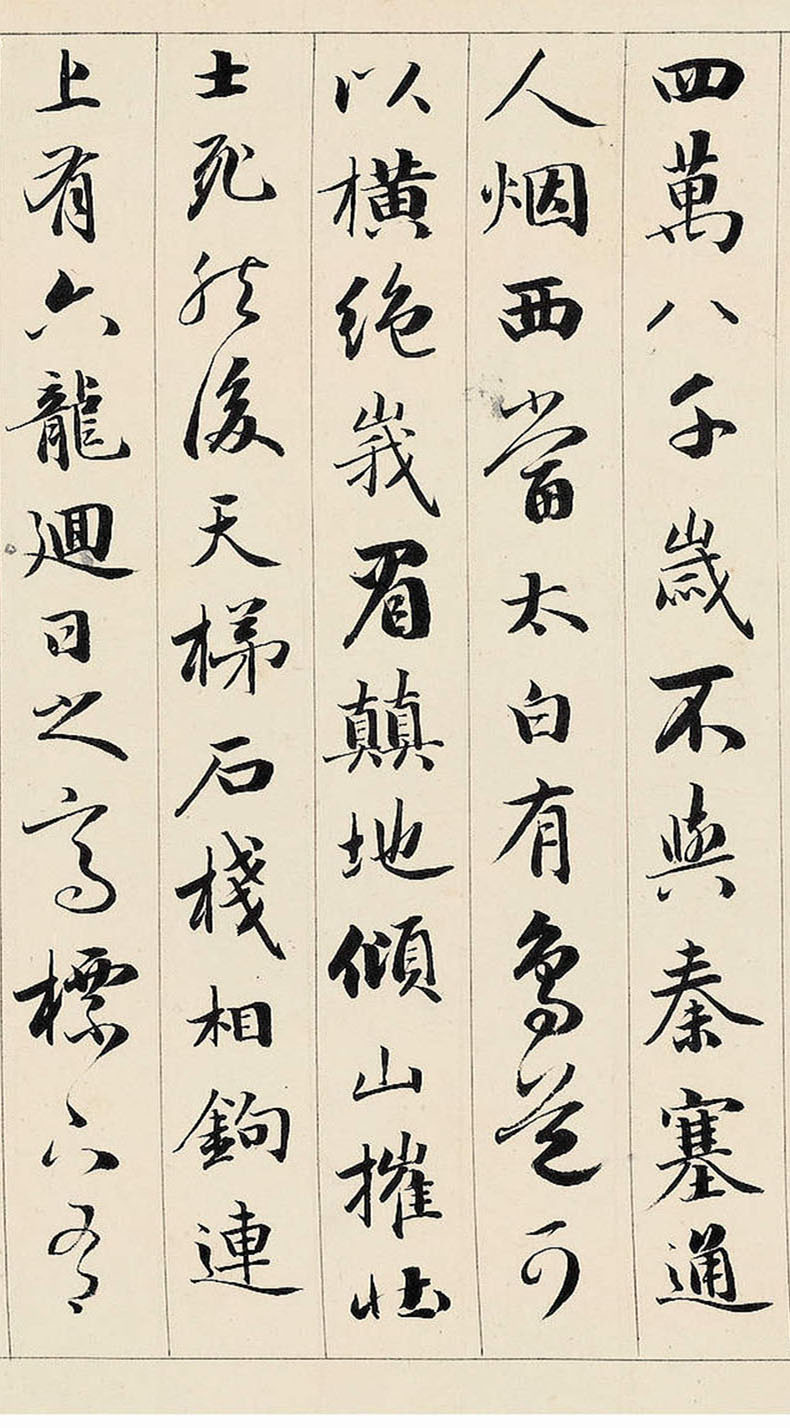 四萬八千歲不與秦塞通
人烟西當太白有鳥道可
以橫絶峩眉顛地傾山摧壯
士死然後天梯石棧相鉤連
上有六龍廻日之高標下有